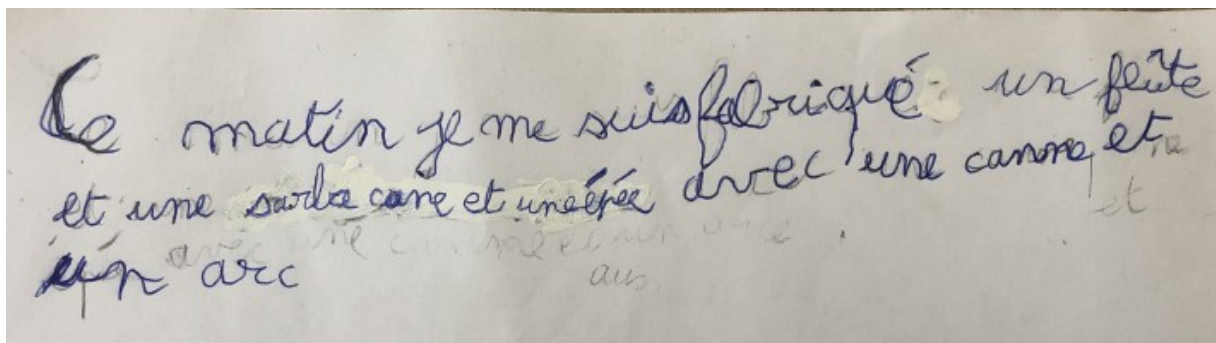 Ce matin je me suis fabriqué un flûte
et une sarbacane et une épée avec une canne et
un arc